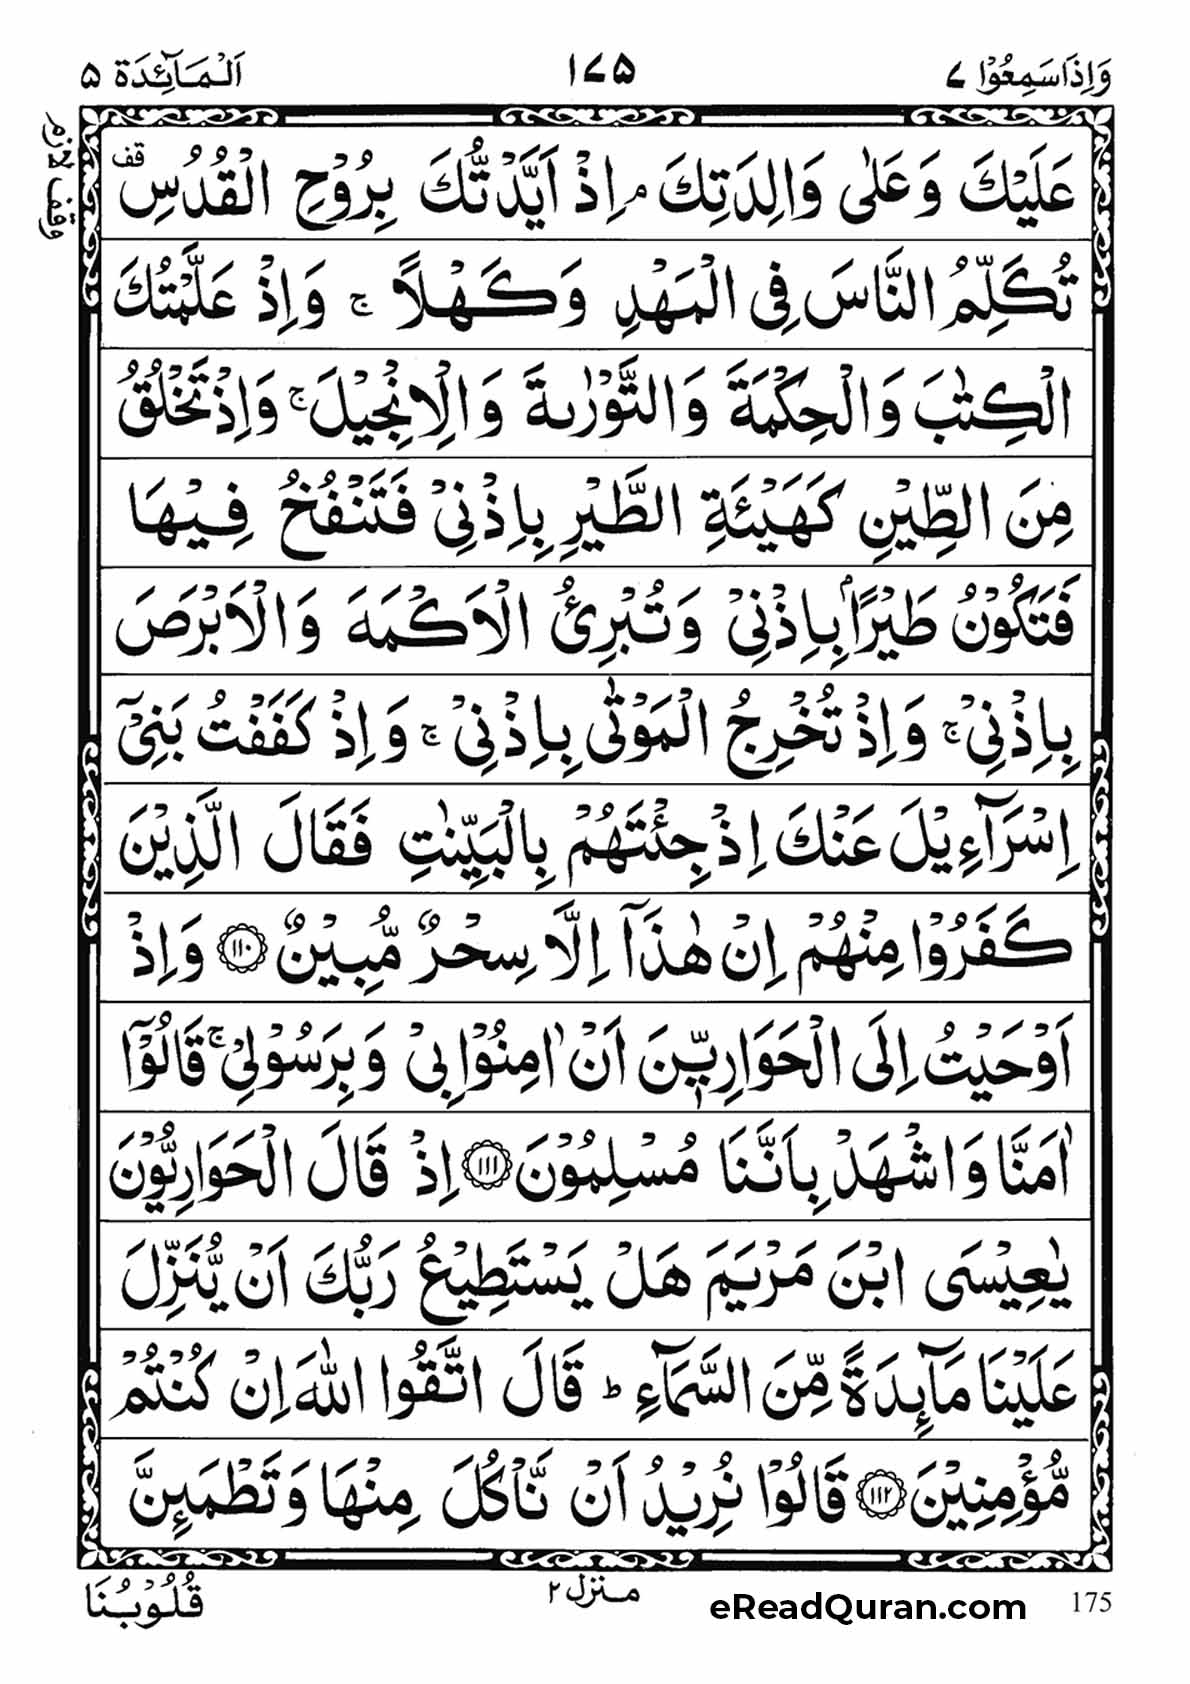 وَاِذَا سَمِعُوۡا ٧
١٧٥
اَلۡمَآئِدَة ٥
وقف لازم
عَلَيۡكَ وَعَلٰى وَالِدَتِكَ ۘ اِذۡ اَيَّدۡتُّكَ بِرُوۡحِ الۡقُدُسِ قف
تُكَلِّمُ النَّاسَ فِى الۡمَهۡدِ وَكَهۡلًا ۚ وَاِذۡ عَلَّمۡتُكَ
الۡكِتٰبَ وَالۡحِكۡمَةَ وَالتَّوۡرٰٮةَ وَالۡاِنۡجِيۡلَ ۚ وَاِذۡ تَخۡلُقُ
مِنَ الطِّيۡنِ كَهَيۡئَةِ الطَّيۡرِ بِاِذۡنِىۡ فَتَنۡفُخُ فِيۡهَا
فَتَكُوۡنُ طَيۡرًۢا بِاِذۡنِىۡ وَتُبۡرِئُ الۡاَكۡمَهَ وَالۡاَبۡرَصَ
بِاِذۡنِىۡ ۚ وَاِذۡ تُخۡرِجُ الۡمَوۡتٰى بِاِذۡنِىۡ ۚ وَاِذۡ كَفَفۡتُ بَنِىۡۤ
اِسۡرَآءِيۡلَ عَنۡكَ اِذۡ جِئۡتَهُمۡ بِالۡبَيِّنٰتِ فَقَالَ الَّذِيۡنَ
كَفَرُوۡا مِنۡهُمۡ اِنۡ هٰذَاۤ اِلَّا سِحۡرٌ مُّبِيۡنٌ ﴿١١٠﴾ وَاِذۡ
اَوۡحَيۡتُ اِلَى الۡحَوَارِيّٖنَ اَنۡ اٰمِنُوۡا بِىۡ وَبِرَسُوۡلِىۡ ۚ قَالُوۡۤا
اٰمَنَّا وَاشۡهَدۡ بِاَنَّنَا مُسۡلِمُوۡنَ ﴿١١١﴾ اِذۡ قَالَ الۡحَوَارِيُّوۡنَ
يٰعِيۡسَى ابۡنَ مَرۡيَمَ هَلۡ يَسۡتَطِيۡعُ رَبُّكَ اَنۡ يُّنَزِّلَ
عَلَيۡنَا مَآئِدَةً مِّنَ السَّمَآءِ ؕ قَالَ اتَّقُوا اللّٰهَ اِنۡ كُنۡتُمۡ
مُّؤۡمِنِيۡنَ ﴿١١٢﴾ قَالُوۡا نُرِيۡدُ اَنۡ نَّاۡكُلَ مِنۡهَا وَتَطۡمَئِنَّ
قُلُوۡبُنَا
منزل ٢
eReadQuran.com
175